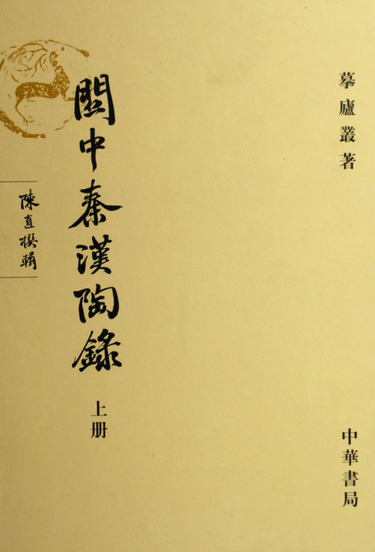 摹廬叢著
關中秦漢陶錄
上册
陳直撰輯
中華書局